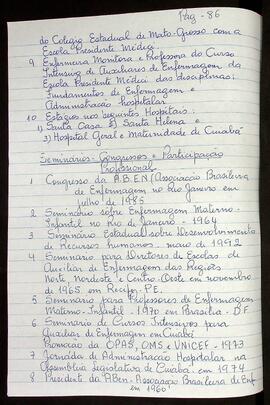 Pag - 86
do Colegio Estadual de Mato-Grosso com a
Escola Presidente Médici
9 Enfermeira Monitora e Professora do Curso
Intensivo de Auxiliares de Enfermagem da
Escola Presidente Médici das disciplinas:
Fundamentos de Enfermagem e
Administração hospitalar
10 Estagios nos seguintes Hospitais:
1) Santa Casa 2) Santa Helena e
3) Hospital Geral e Maternidade de Cuiabá
Seminários - Congressos e Participação
Profissional
1 Congresso da A.B.E.N (Associação Brasileira
de Enfermagem no Rio Janeiro em
julho de 1985
2 Seminário sobre Enfermagem Materno-
Infantil no Rio de Janeiro - 1964
3 Seminário Estadual sobre Desenvolvimento
de Recursos humanos. maio de 1992
4 Seminário para Diretores de Escolas de
Auxiliar de Enfermagem das Regiões
Norte, Nordeste e Centro-Oeste em novembro
de 1965 em Recife, PE.
5 Seminário para Professores de Enfermagem
Materno-Infantil - 1970 em Brasília - D.F
6 Seminário de Cursos Intensivos para
Auxiliar de Enfermagem em Cuiabá
Promoção da OPAS, OMS e UNICEF - 1973
7 Jornada de Administração Hospitalar na
Assembléia Legislativa de Cuiabá em 1974
8 Presidente da ABen - Associação Brasileira de Enf
em 1966!